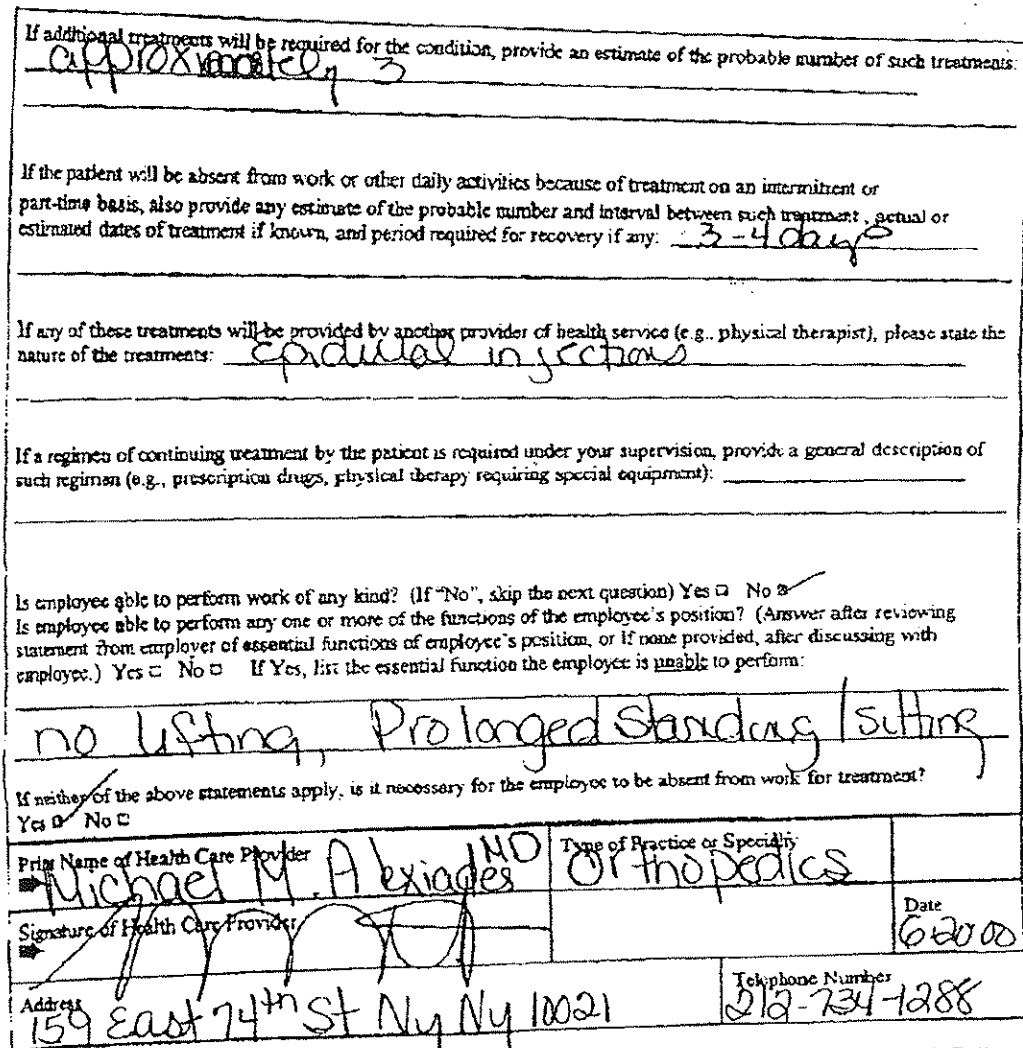 If additional treatments will be required for the condition, provide an estimate of the probable number of such treatments:
approximately 3
If the patient will be absent from work or other daily activities because of treatment on an intermittent or
part-time basis, also provide any estimate of the probable number and interval between such treatment, actual or
estimated dates of treatment if known, and period required for recovery if any: 3-4 days
If any of these treatments will be provided by another provider of health service (e.g., physical therapist), please state the
nature of the treatments: epidural injections
If a regimen of continuing treatment by the patient is required under your supervision, provide a general description of
such regimen (e.g., prescription drugs, physical therapy requiring special equipment):
Is employee able to perform work of any kind? (If "No", skip the next question) Yes □ No ☑
Is employee able to perform any one or more of the functions of the employee's position? (Answer after reviewing
statement from employer of essential functions of employee's position, or if none provided, after discussing with
employee.) Yes □ No □ If Yes, list the essential function the employee is unable to perform:
no lifting, Prolonged Standing / sitting
If neither of the above statements apply, is it necessary for the employee to be absent from work for treatment?
Yes ☑ No □
Print Name of Health Care Provider
Michael M. Alexiades MD
Type of Practice or Specialty
Orthopedics
Signature of Health Care Provider
Date
6-20-00
Address
159 East 74th St Ny Ny 10021
Telephone Number
212-734-1288